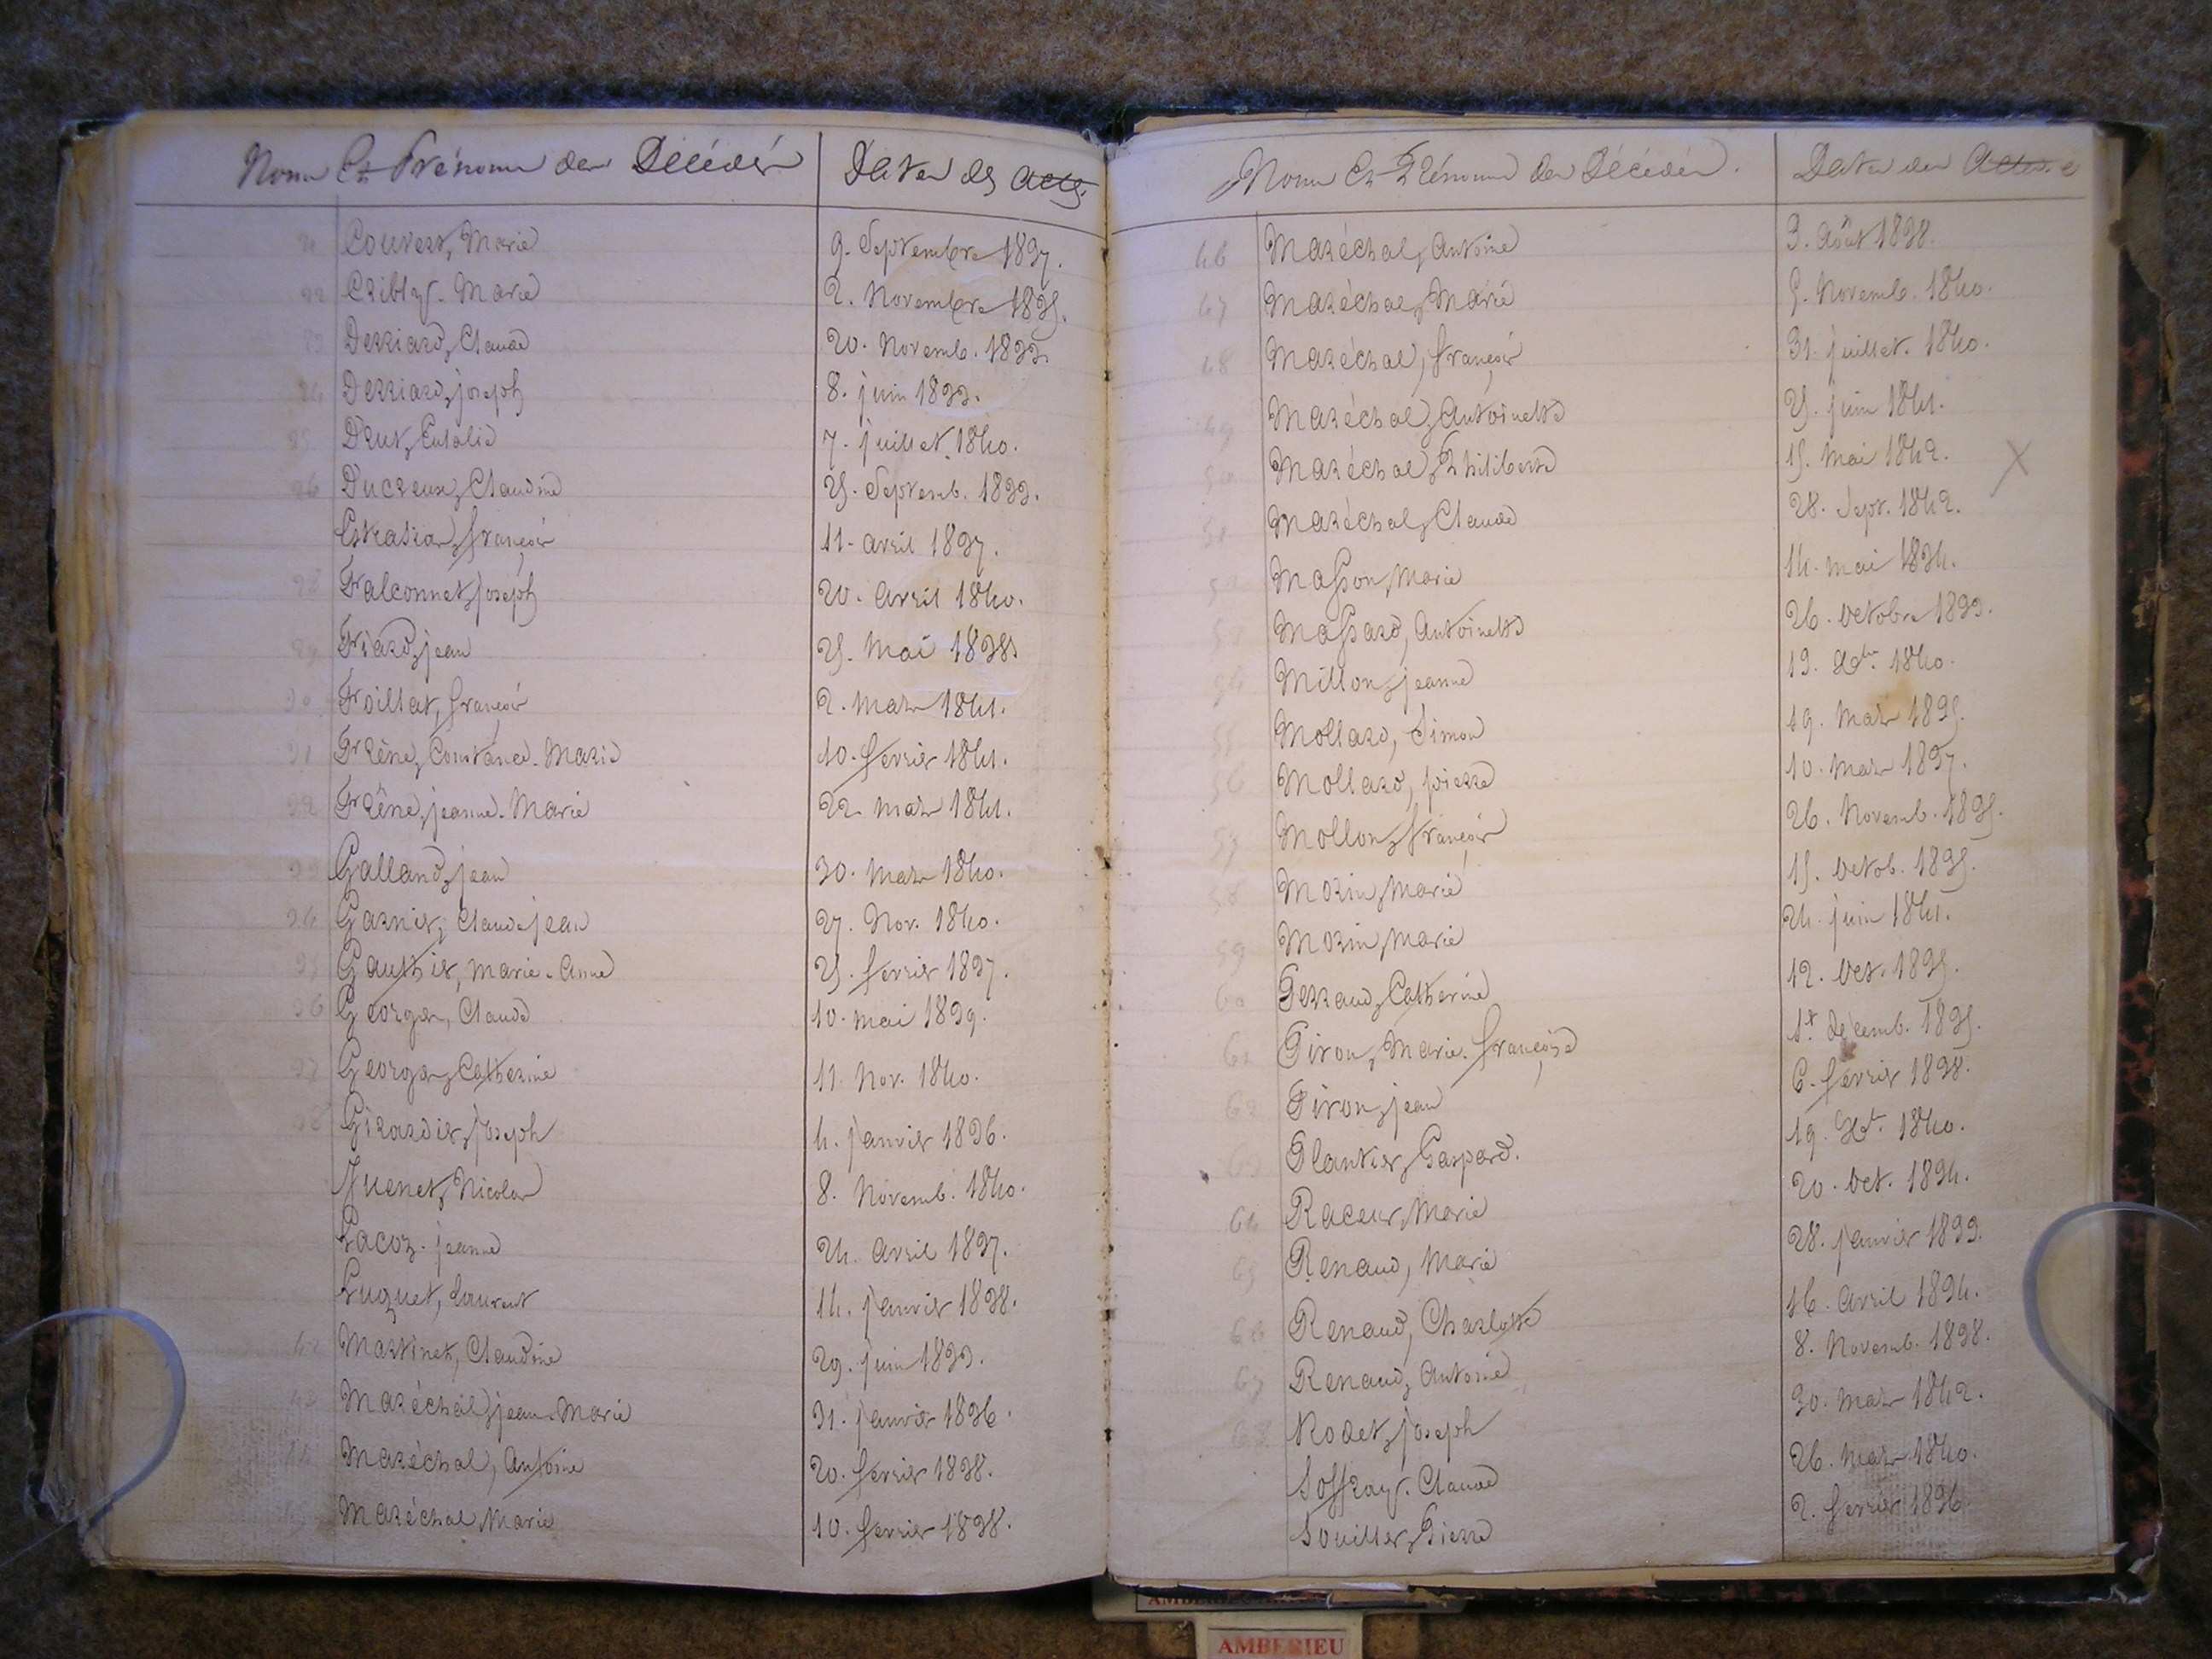 Noms Et Prénoms des Décédés
Dates des actes
21 Couvert, Marie 9. Septembre 1837.
22 Cribly. Marie 2. Novembre 1835.
23 Derriard, Claude 20. Novemb. 1833.
24 Derriard, joseph 8. juin 1833.
25 Drut, Eulalie 7. juillet. 1840.
26 Ducreux, Claudine 25. Septemb. 1833.
françois 11. avril 1837.
28 Falconnet, joseph 20. Avril 1840.
29 Friard, jean 25. Mai 1838.
30 Foillat, françois 2. Mars 1841.
31 Frêne, Constance. Marie 10. fevrier 1841.
32 Frêne, jeanne. Marie 22. mars 1841.
33 Galland, jean 30. Mars 1840.
34 Garnier, Claude jean 27. Nov. 1840.
35 Gauthier, Marie. Anne 25. fevrier 1837.
36 Georges, Claude 10. Mai 1839.
37 Georges, Catherine 11. Nov. 1840.
38 Girardier, joseph 4. janvier 1836.
Juenet, Nicolas 8. Novemb. 1840.
Lacoz. jeanne 24. Avril 1837.
Luquet, Laurent 14. janvier 1838.
42 Martinet, Claudine 29. juin 1833.
43 Maréchal, jean. Marie 31. janvier 1836.
44 Maréchal, Antoine 20. fevrier 1838.
45 Maréchal, Marie 10. fevrier 1838.
Noms Et Prénoms des Décédés.
Dates des Actes.
46 Maréchal, Antoine 3. Août 1838.
47 Maréchal, Marie 5. Novemb. 1840.
48 Maréchal, françois 31. juillet. 1840.
49 Maréchal, Antoinette 25. juin 1841.
50 Maréchal, Philiberte 15. Mai 1842. X
51 Maréchal, Claude 28. Sept. 1842.
52 Masson, Marie 14. mai 1834.
53 Massard, Antoinette 26. Octobre 1833.
54 Millon, jeanne 13. Xbre 1840.
55 Mollard, Simon 19. Mars 1835.
56 Mollard, pierre 10. Mars 1837.
57 Mollon, françois 26. Novemb. 1835.
58 Morin, Marie 15. Octob. 1835.
59 Morin, Marie 24. juin 1841.
60 Perraud, Catherine 12. Oct. 1835.
61 Piron, Marie. françoise 1er décemb. 1835.
62 Piron, jean 6. février 1838.
63 Plantier, Gaspard. 19. Xbre 1840.
64 Raceur, Marie 20. Oct. 1834.
65 Renaud, Marie 28. janvier 1833.
66 Renaud, Charlotte 16. Avril 1834.
67 Renaud, Antoine 8. Novemb. 1838.
68 Rodet, joseph 30. Mars 1842.
Soffray. Claude 26. Mars 1840.
Souiller, Pierre 2. fevrier 1836.
AMBERIEU